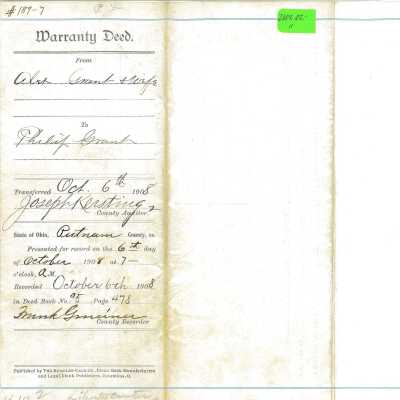 #187-7
Warranty Deed.
From
Grant & Wife
To
Philip Grant
Transferred Oct. 6th 1908
Joseph Kersting
County Auditor
State of Ohio, Putnam County, ss.
Presented for record on the 6th day
of October 1908 at 7-
o'clock, A M.
Recorded October 6th 1908
in Deed Book No. 95 Page 478
Frank
County Recorder
Published by The
and Legal Blank Publishers, Columbus, O.